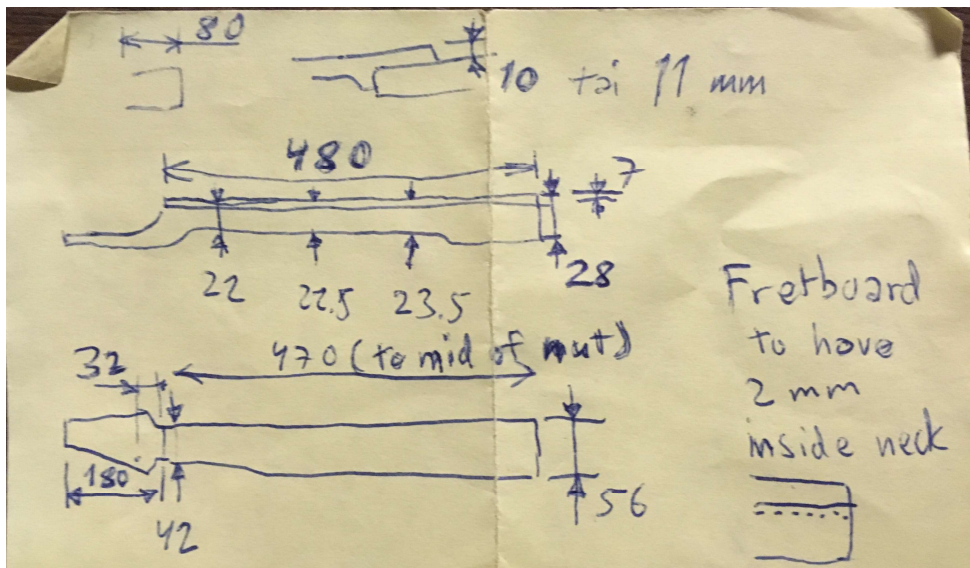 80
10 tai 11 mm
480
7
22
22.5
23.5
28
470 (to mid of nut)
32
180
42
56
Fretboard
to have
2 mm
inside neck